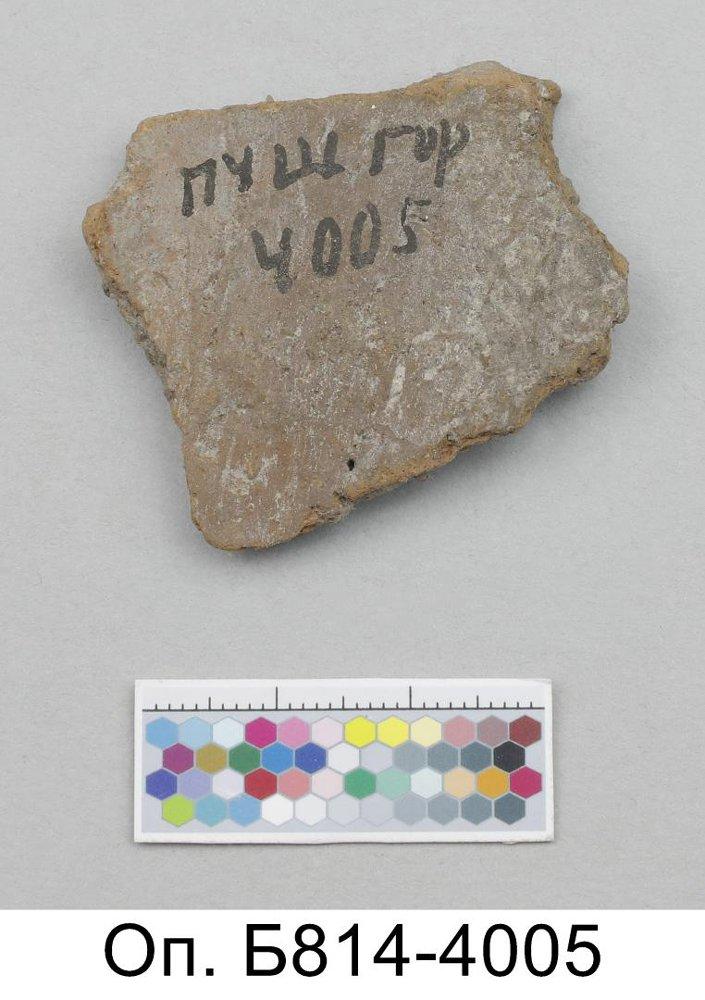 ПУШ ГОР
4005
Оп. Б814-4005